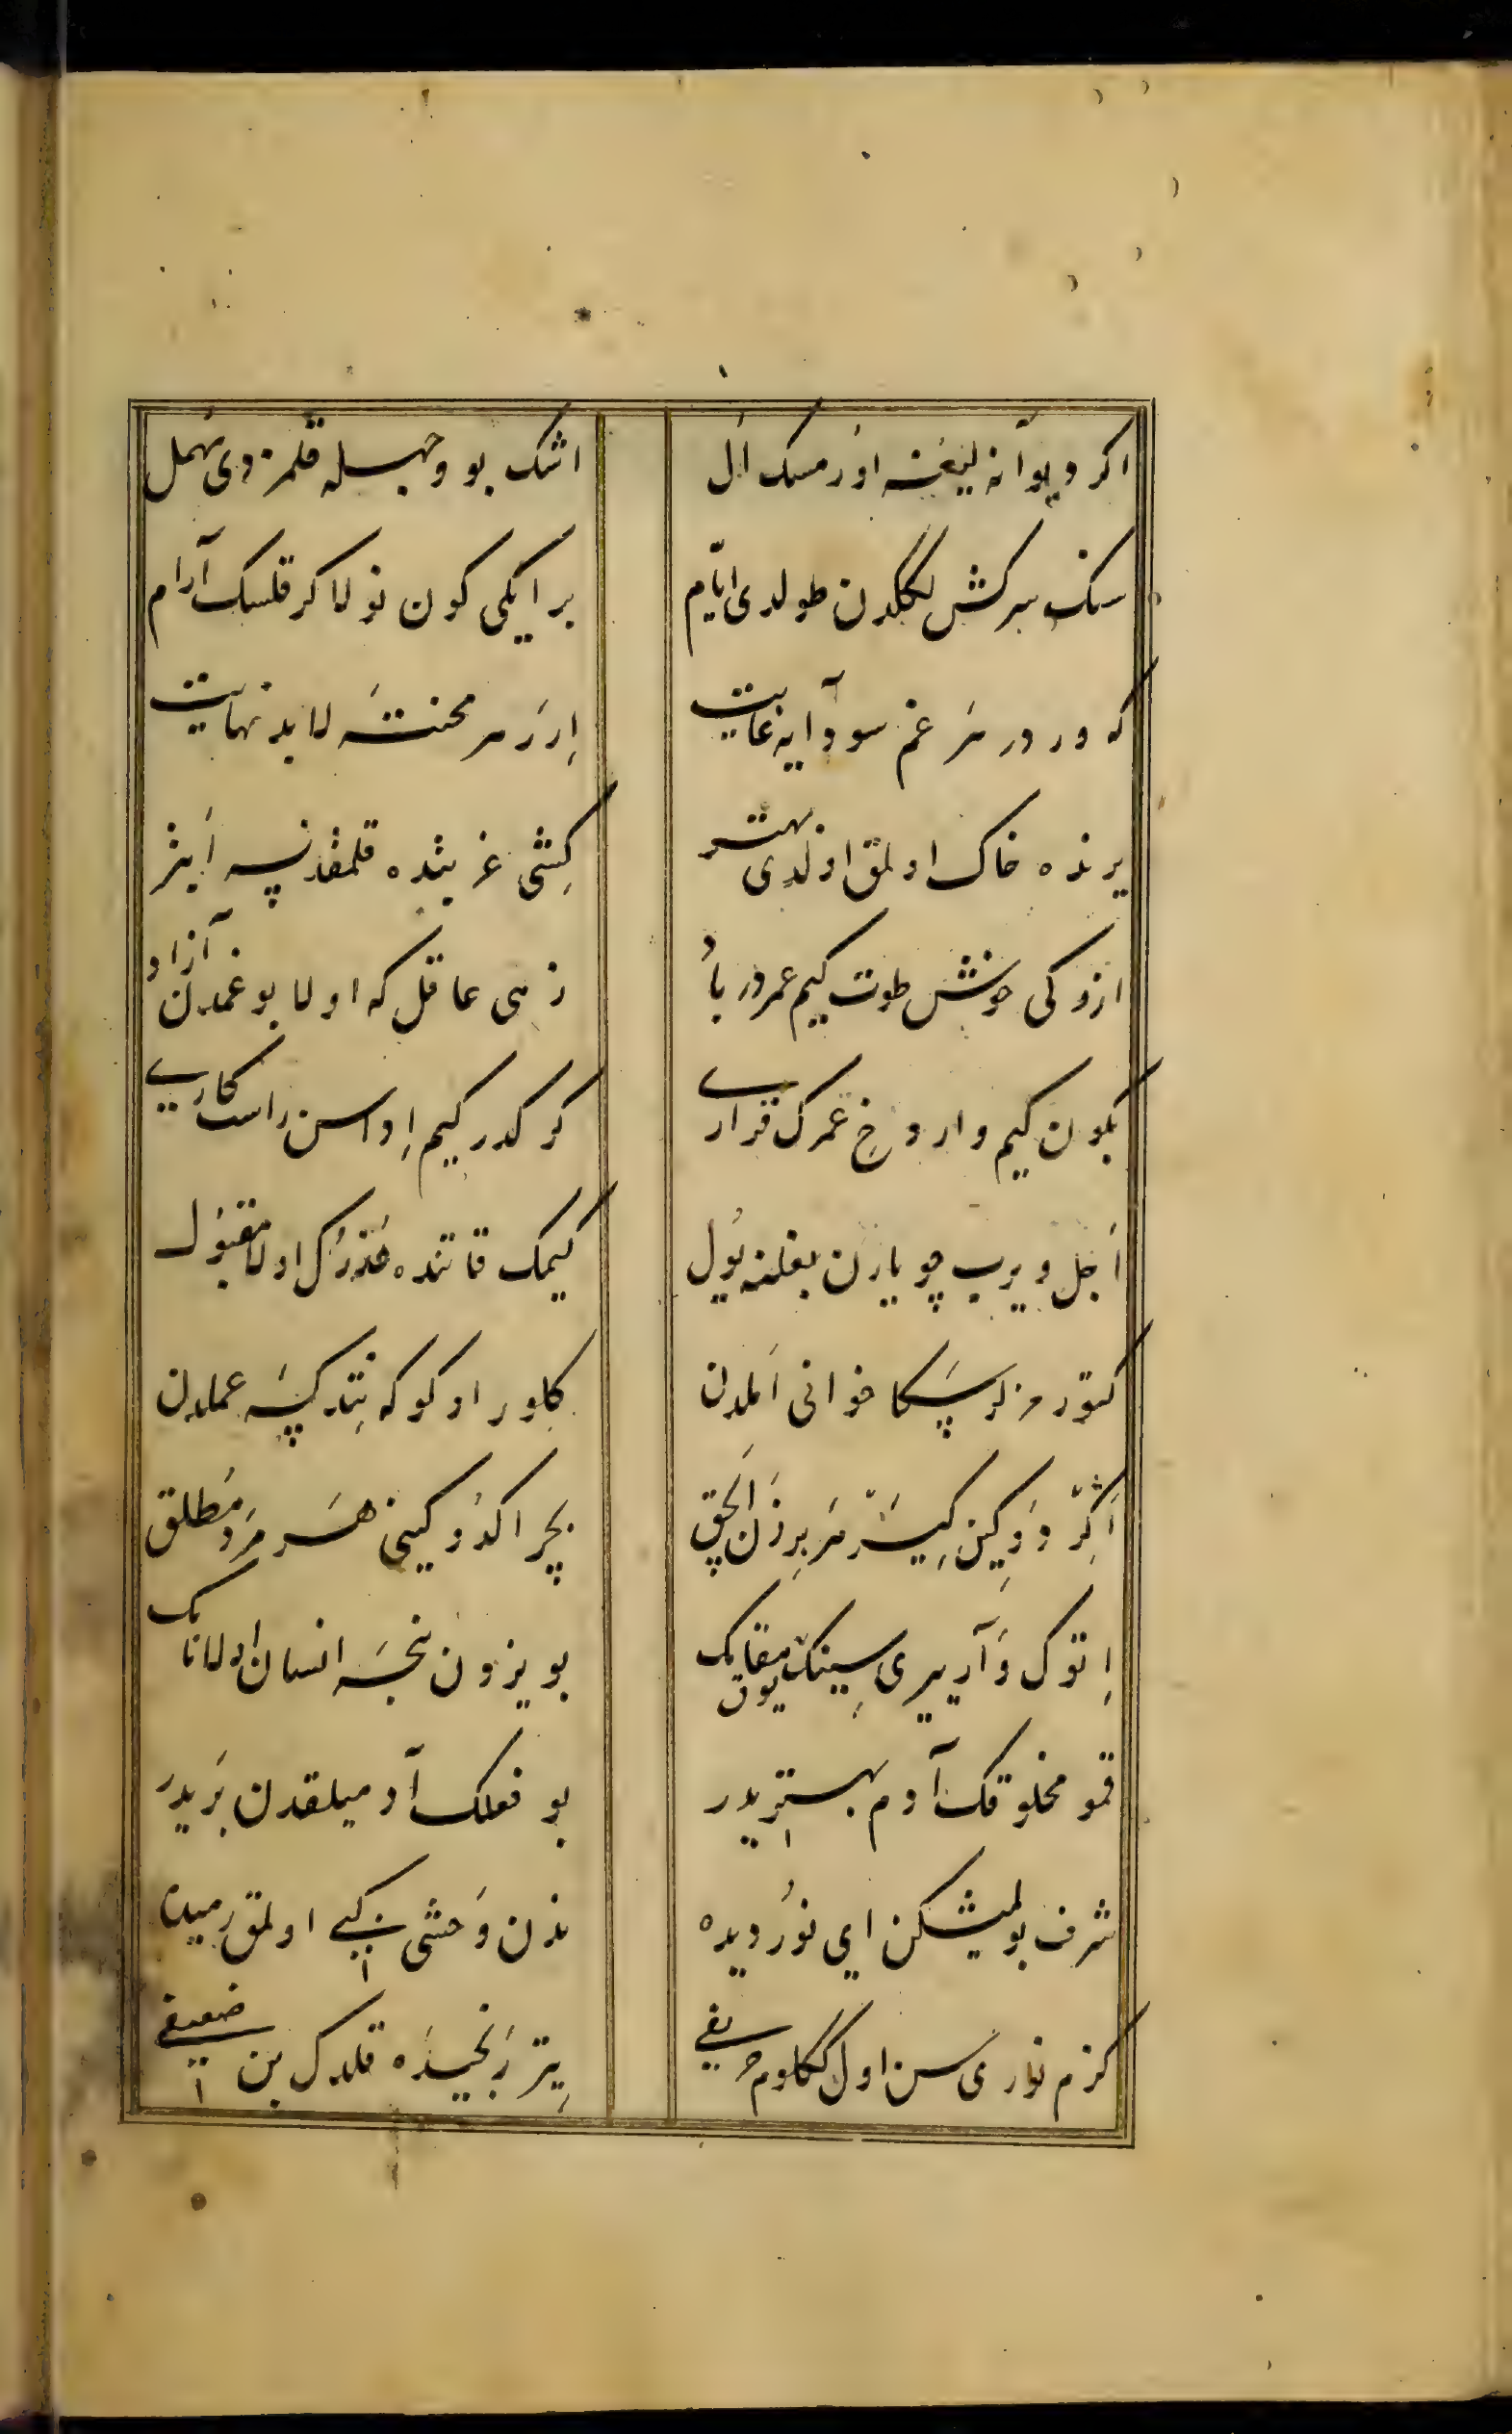 اگر دیوانه لیغنه اورمسک ال اشک بو وجهله قلمزدی مهمل
سنک سرکش لگکدن طولدی ایام بر ایکی کون نولا کر قلسک آرام
که وردر هر غم سودایه غایت ارر هر محنته لابد نهایت
یرنده خاک اولمق اولدی بهتر کشی غربتده قلمقدنسه ابتر
ازوکی خوش طوت کیم عمردر باد زهی عاقل که اولا بو غمدن آزاد
بکون کیم واردرخ عمرک قراری کرکدر کیم اداسن راست کاری
اجل ویرب چو یارن بغلنه یول کیمک قاتنده عذرک اولا مقبول
کتورمزلر سکا خوانی املدن کلور اوکوکه نتدکسه عملدن
اکر دوکین کیسر هر برزن الحق بچر اکدوکینی هر مرد مطلق
اتوک وار یری سینک یوق مقابک بویزدن نجه انسان اولا نابک
قمو مخلوقک آدم بهتریدر بو فعلک آدمیلقدن بریدر
شرف بولمیشکن ای نور دیده ندن وحشی کبی اولمق رمیده
کزم نوری سن اول کلکاوم حریفی یتر رنجیده قلدک بن ضعیفی